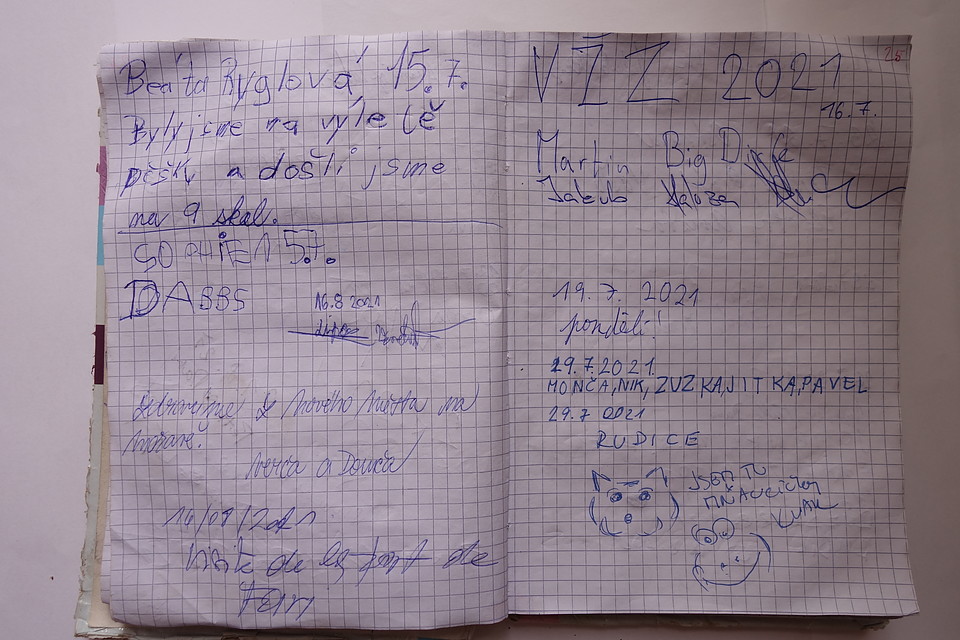 Beáta Ryglová 15.7.
Byly jsme na výletě
pěšky a došli jsme
na 9 skal.
SOPHIE 15.7.
DASBS
16.8 2021
Zdravíme z Nového Města na
Moravě!
Verča a Domča
16/07/2021
de
VŽZ 2021
25
16.7.
Martin Big
Jakub
19.7.2021
pondělí!
29.7.2021
MONČA, NIK, ZUZKA, JITKA, PAVEL
29.7 0021
RUDICE
JSEM TU
KVAK